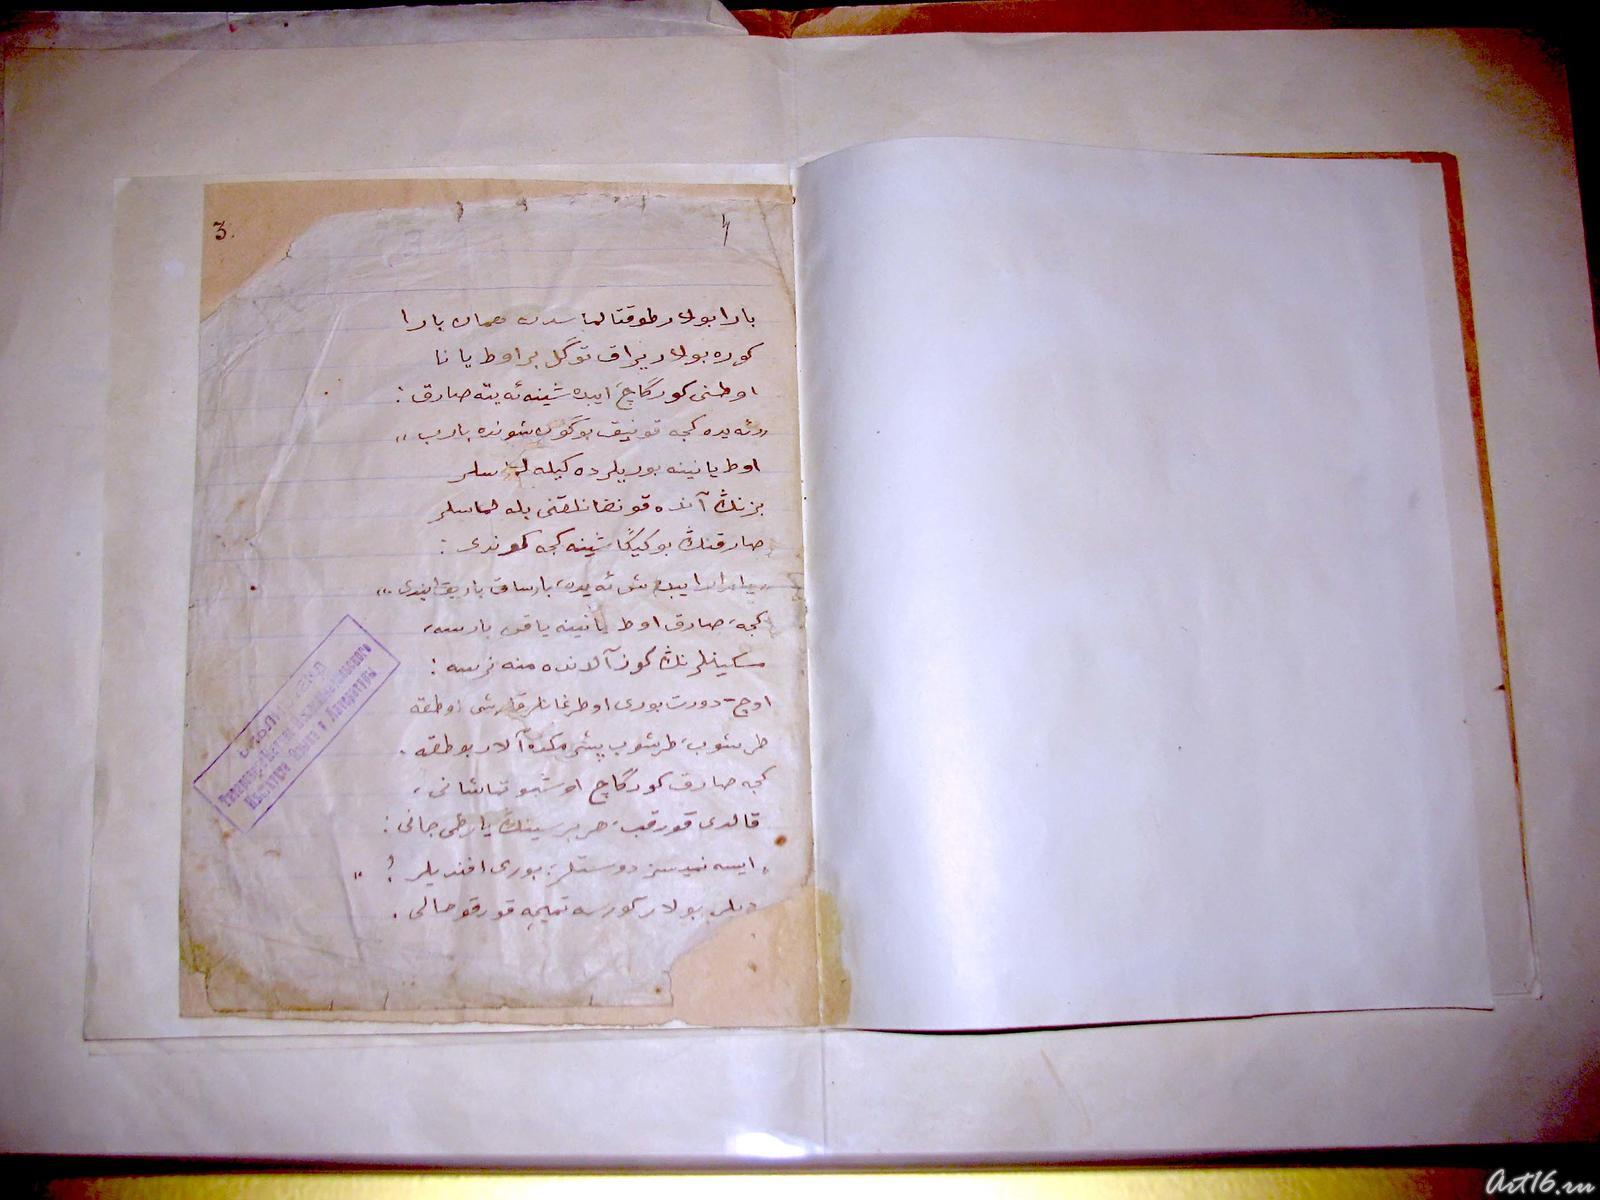 3.
بارا بولار طوقتالماسدن همان بارا
کوره بولار یراق توگل بر اوط یانا
اوطنی کورگاچ ایبده شینه ئه یته صارق :
„ئه یده کجه قونیق بوگون شونده باریب “
اوط یانینه بوریلرده کیله لماسلر
بزنڭ آنده قونغانلقنی بله لماسلر
صارقنڭ بو کیڭاشینه کجه کوندی :
ئه یده، بارساق باریق ایندی “
کجه، صارق اوط یانینه یاقن بارسه،
مسکینلرنڭ کوز آلدنده منه نرسه :
اوچ - دورت بوری اوطرغانلر قارشی اوطقه
طرشوب، طرشوب پشرمکده آلار بوطقه .
کجه صارق کورگاچ اوشبو تماشانی ،
قالدی قورقب، هر برسینڭ یارطی جانی :
„ ایسه نمیسز دوستلر، بوری افندیلر ! “
بولار کورسه تمیچه قورقو حالی .
Института Языка и Литературы
Art16.ru